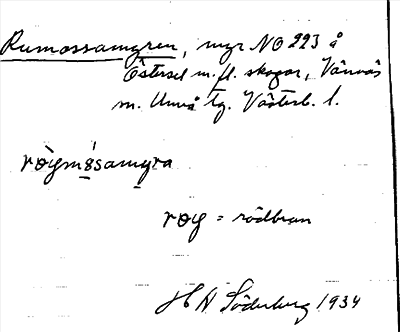 Rumossamyren, myr NO 223 å
Östersel m.fl. skogar, Vännäs
m. Umeå tg. Västerb. l.
røymǿsamyra
røy = rödbrun
H N Söderberg 1934